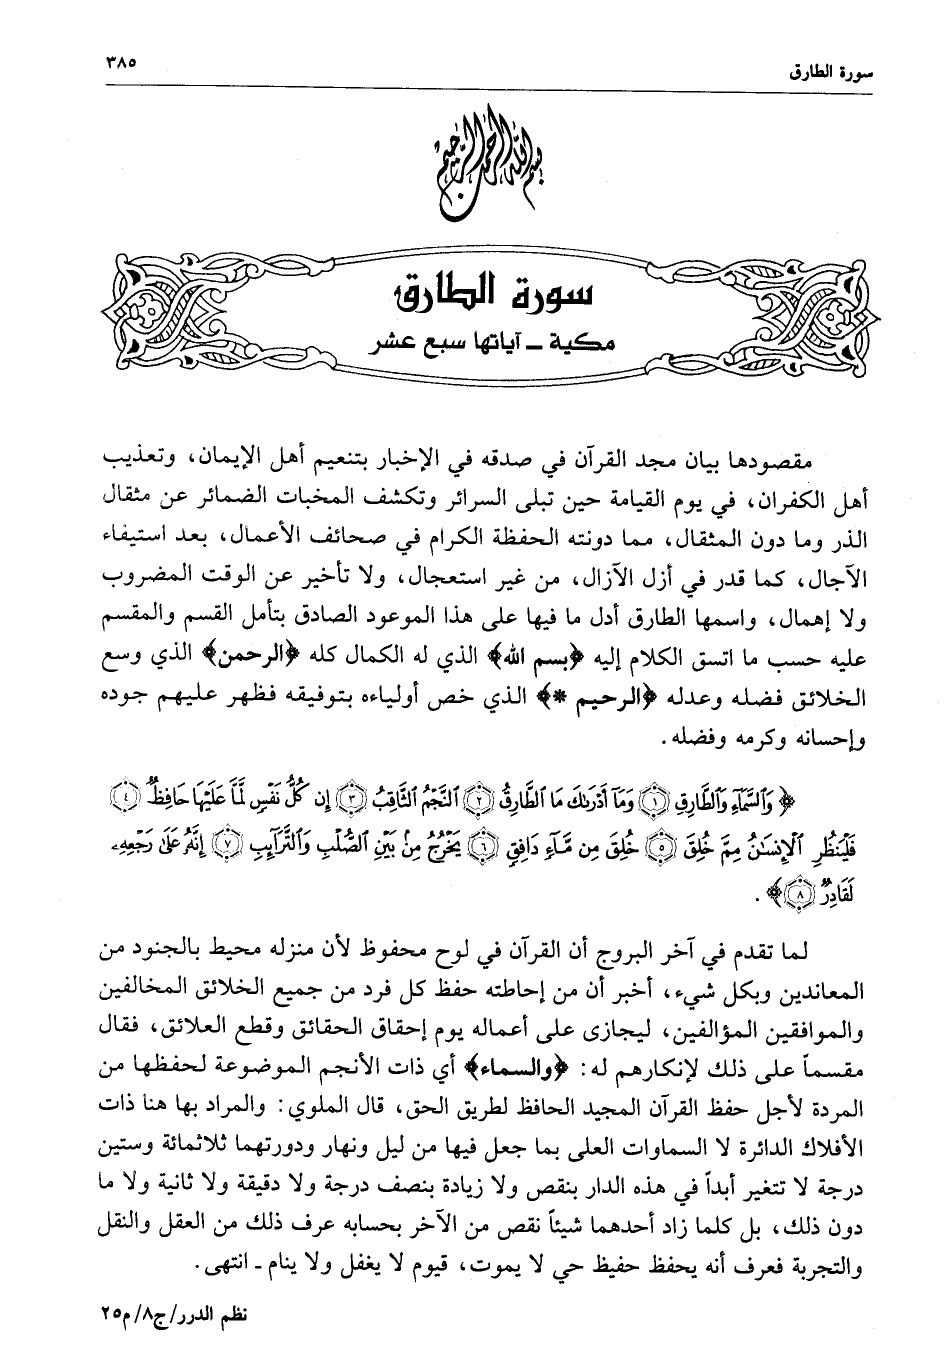 سورة الطارق
٣٨٥
بسم الله الرحمن الرحيم
سورة الطارق
مكية ـ آياتها سبع عشر
مقصودها بيان مجد القرآن في صدقه في الإخبار بتنعيم أهل الإيمان، وتعذيب
أهل الكفران، في يوم القيامة حين تبلى السرائر وتكشف المخبات الضمائر عن مثقال
الذر وما دون المثقال، مما دونته الحفظة الكرام في صحائف الأعمال، بعد استيفاء
الآجال، كما قدر في أزل الآزال، من غير استعجال، ولا تأخير عن الوقت المضروب
ولا إهمال، واسمها الطارق أدل ما فيها على هذا الموعود الصادق بتأمل القسم والمقسم
عليه حسب ما اتسق الكلام إليه ﴿بسم الله﴾ الذي له الكمال كله ﴿الرحمن﴾ الذي وسع
الخلائق فضله وعدله ﴿الرحيم *﴾ الذي خص أولياءه بتوفيقه فظهر عليهم جوده
وإحسانه وكرمه وفضله.
﴿ وَٱلسَّمَآءِ وَٱلطَّارِقِ ١ وَمَآ أَدْرَىٰكَ مَا ٱلطَّارِقُ ٢ ٱلنَّجْمُ ٱلثَّاقِبُ ٣ إِن كُلُّ نَفْسٍ لَّمَّا عَلَيْهَا حَافِظٌ ٤
فَلْيَنظُرِ ٱلْإِنسَٰنُ مِمَّ خُلِقَ ٥ خُلِقَ مِن مَّآءٍ دَافِقٍ ٦ يَخْرُجُ مِنۢ بَيْنِ ٱلصُّلْبِ وَٱلتَّرَآئِبِ ٧ إِنَّهُۥ عَلَىٰ رَجْعِهِۦ
لَقَادِرٌ ٨﴾ .
لما تقدم في آخر البروج أن القرآن في لوح محفوظ لأن منزله محيط بالجنود من
المعاندين وبكل شيء، أخبر أن من إحاطته حفظ كل فرد من جميع الخلائق المخالفين
والموافقين المؤالفين، ليجازى على أعماله يوم إحقاق الحقائق وقطع العلائق، فقال
مقسماً على ذلك لإنكارهم له: ﴿والسماء﴾ أي ذات الأنجم الموضوعة لحفظها من
المردة لأجل حفظ القرآن المجيد الحافظ لطريق الحق، قال الملوي: والمراد بها هنا ذات
الأفلاك الدائرة لا السماوات العلى بما جعل فيها من ليل ونهار ودورتهما ثلاثمائة وستين
درجة لا تتغير أبداً في هذه الدار بنقص ولا زيادة بنصف درجة ولا دقيقة ولا ثانية ولا ما
دون ذلك، بل كلما زاد أحدهما شيئاً نقص من الآخر بحسابه عرف ذلك من العقل والنقل
والتجربة فعرف أنه يحفظ حفيظ حي لا يموت، قيوم لا يغفل ولا ينام ـ انتهى.
نظم الدرر/ج٨/م٢٥